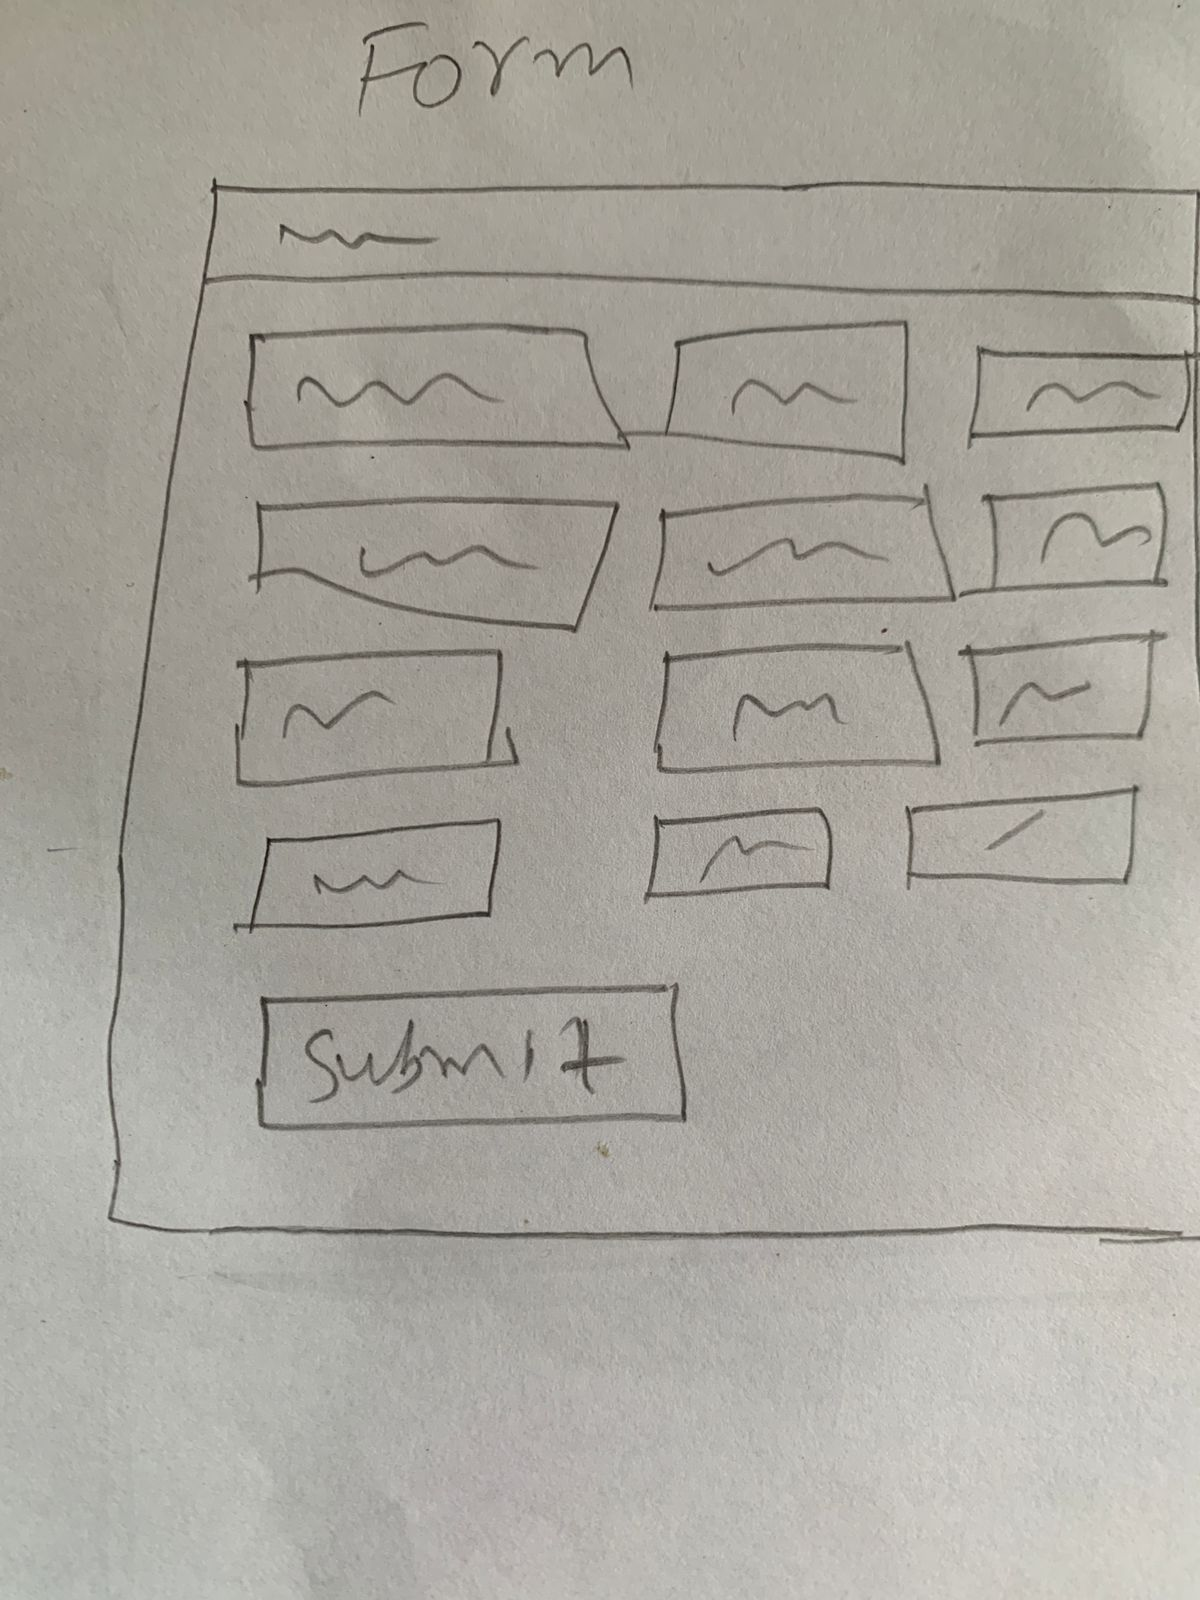 Form
Submit